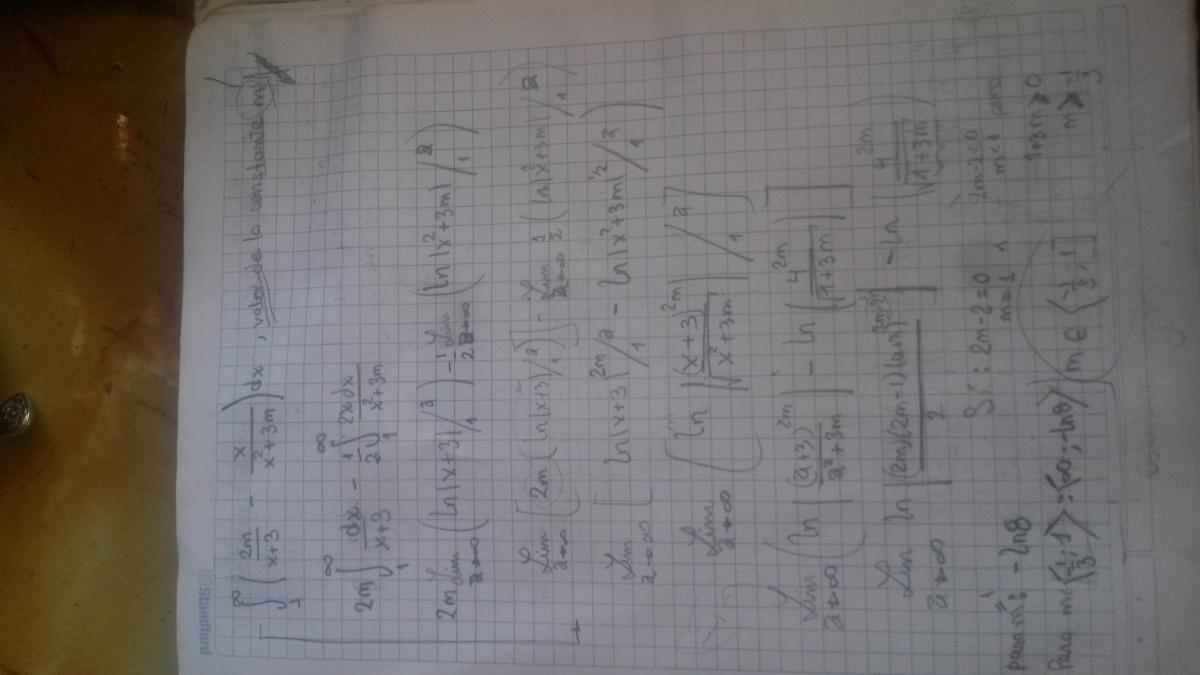 Standford
∫₁^∞ ( 2m/(x+3) - x/(x²+3m) ) dx , valor de la constante m
2m ∫₁^∞ dx/(x+3) - 1/2 ∫₁^∞ 2x dx/(x²+3m)
2m Lim a→∞ ( ln|x+3| /₁^a ) - 1/2 Lim a→∞ ( ln|x²+3m| /₁^a )
Lim a→∞ [ 2m ( ln|x+3| /₁^a ) ] - Lim a→∞ 1/2 ( ln|x²+3m| /₁^a )
Lim a→∞ [ ln|x+3|^2m /₁^a - ln|x²+3m|^1/2 /₁^a )
Lim a→∞ ( ln | (x+3)^2m / √(x²+3m) | /₁^a ]
Lim a→∞ ( ln | (a+3)^2m / a²+3m | - ln ( 4^2m / √(1+3m) ) ]
Lim a→∞ ln | (2m)(2m-1)(a+3)^2m-2 / 2 | - ln ( 4^2m / √(1+3m) )
Si : 2m-2=0 ∧ 2m-2<0
m=1 m<1 para
1+3m≥0
m≥-1/3
para m=1 : -ln8
Para m<-1/3 ; 1> : (∞ ; -ln8) m ∈ < -1/3 ; 1 ]